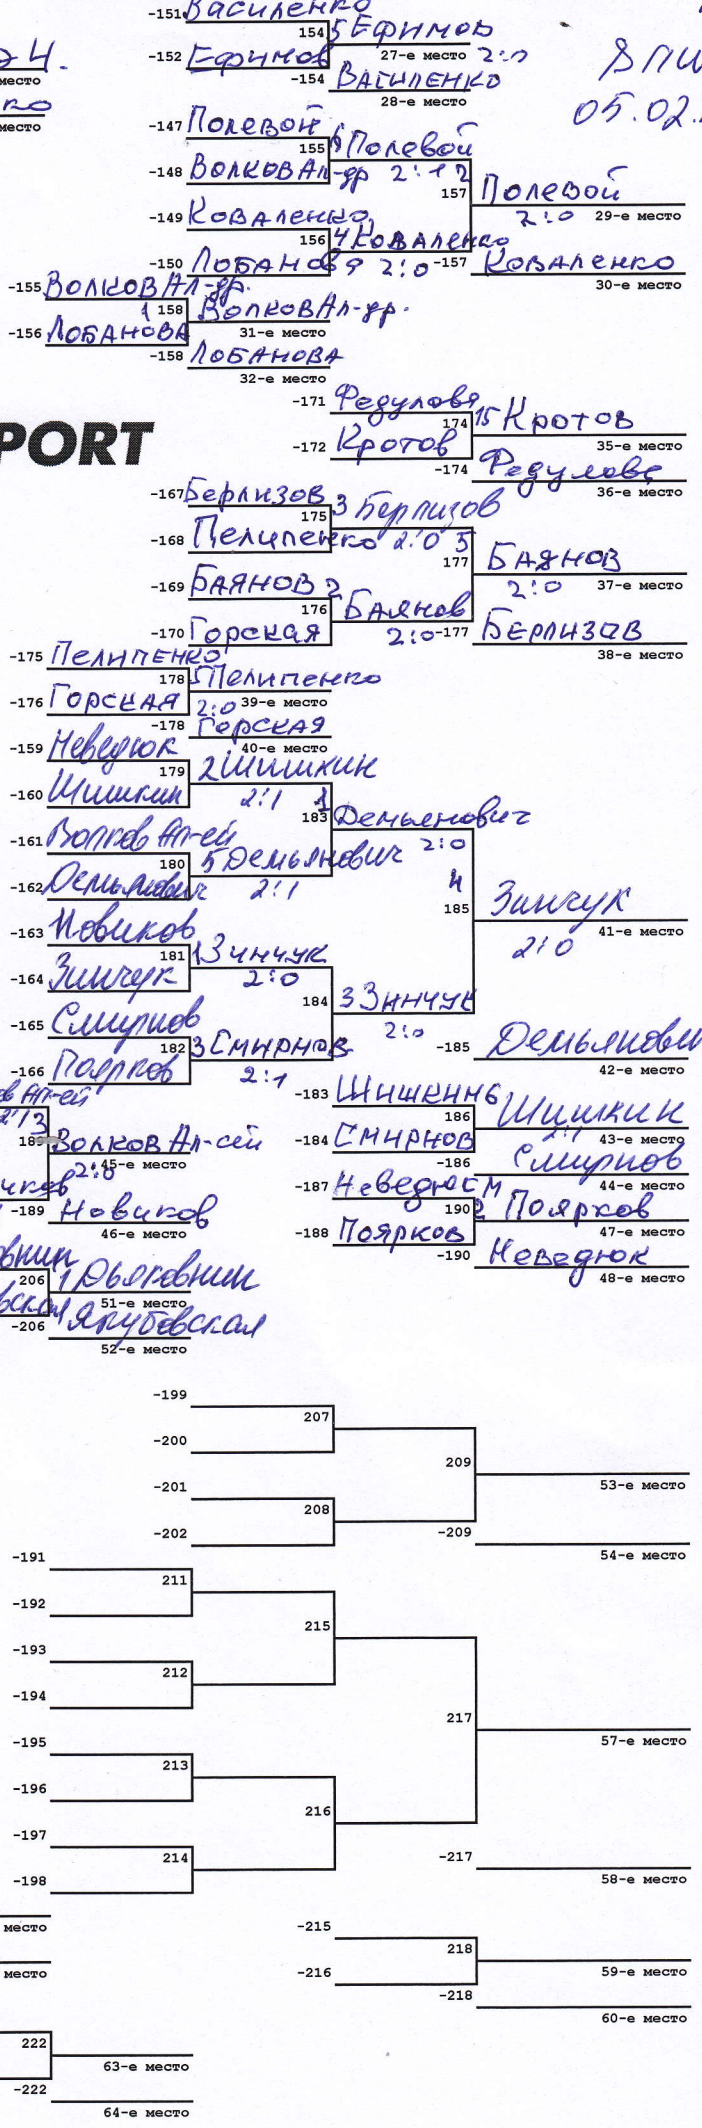 -151 Василенко
154 5 Ефимов
-152 Ефимов 27-е место 2:0
-154 Василенко
28-е место
место
место
05.02.
-147 Полевой
155 Полевой
-148 Волков Ал-др 2:1 2
157 Полевой
2:0 29-е место
-149 Коваленко
156 4 Коваленко
-150 Лобанова 2:0 -157 Коваленко
30-е место
-155 Волков Ал-др.
1 158 Волков Ал-др.
-156 Лобанова 31-е место
-158 Лобанова
32-е место
-171 Федулова
174 15 Кротов
-172 Кротов 35-е место
-174 Федулова
36-е место
PORT
-167 Берлизов
175 3 Берлизов
-168 Пелипенко 2:0 5
177 Баянов
2:0 37-е место
-169 Баянов 2
176 Баянов
-170 Горская 2:0 -177 Берлизов
38-е место
-175 Пелипенко
178 5 Пелипенко
-176 Горская 2:0 39-е место
-178 Горская
40-е место
-159 Неведюк
179 2 Шишкин
-160 Шишкин 2:1 1
183 Демьянович
2:0
-161 Волков Ал-ей
180 5 Демьянович
-162 Демьянович 2:1 4
185 Зинчук
2:0 41-е место
-163 Новиков
181 1 Зинчук
-164 Зинчук 2:0
184 3 Зинчук
2:0
-165 Смирнов
182 3 Смирнов
-166 Поярков 2:1
-185 Демьянович
42-е место
-183 Шишкин 6
186 Шишкин
-184 Смирнов 2:1 43-е место
-186 Смирнов
44-е место
189 Волков Ал-сей
2:0 45-е место
-189 Новиков
46-е место
-187 Неведюк М
190 2 Поярков
-188 Поярков 47-е место
-190 Неведюк
48-е место
206 1 Дьяковнин
51-е место
-206 Якубовская
52-е место
-199
207
-200
209
53-е место
-201
208
-202 -209
54-е место
-191
211
-192
215
-193
212
-194
217
57-е место
-195
213
-196
216
-197
214
-198
-217
58-е место
место
место
-215
218
-216 59-е место
-218
60-е место
222
63-е место
-222
64-е место